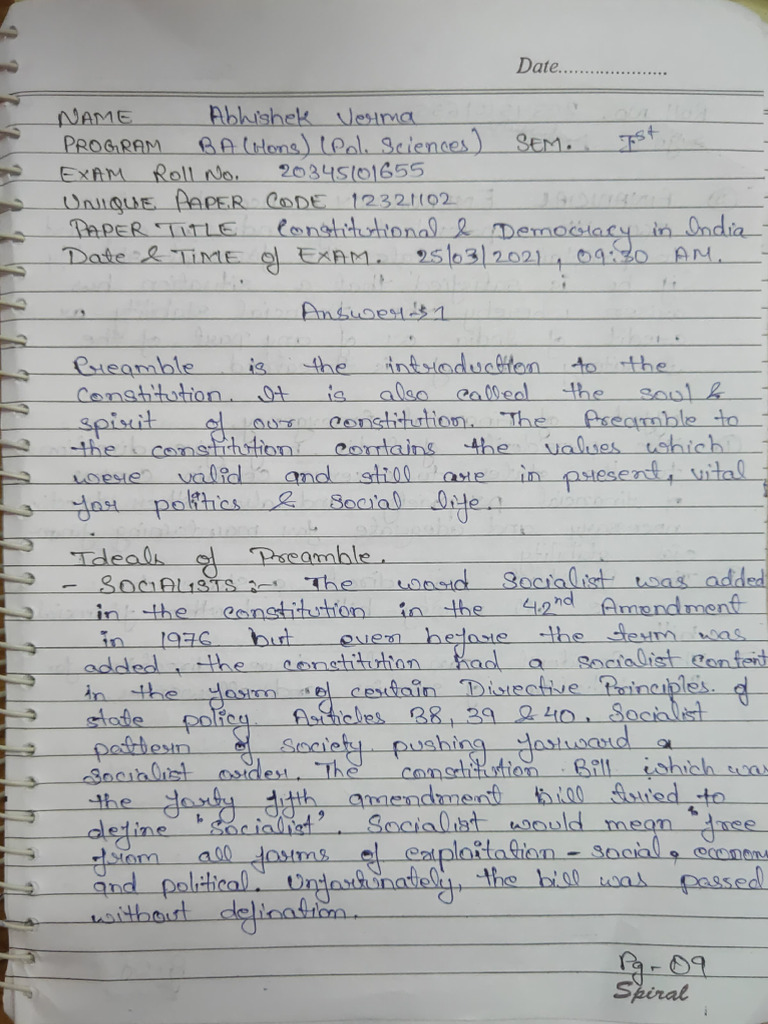 Date.....................
NAME Abhishek Verma
PROGRAM BA (Hons) (Pol. Sciences) SEM. Ist
EXAM Roll No. 20345101655
UNIQUE PAPER CODE 12321102
PAPER TITLE Constitutional & Democracy in India
Date & TIME of EXAM. 25/03/2021, 09:30 AM.
Answer:-1
Preamble is the introduction to the
constitution. It is also called the soul &
spirit of our constitution. The Preamble to
the constitution contains the values which
were valid and still are in present, vital
for politics & social life.
Ideals of Preamble.
- SOCIALISTS :- The word Socialist was added
in the constitution in the 42nd Amendment
in 1976 but even before the term was
added, the constitution had a socialist content
in the form of certain Directive Principles of
state policy. Articles 38, 39 & 40. Socialist
pattern of society pushing forward a
socialist order. The constitution Bill which was
the forty fifth amendment bill tried to
define "Socialist". Socialist would mean "free
from all forms of exploitation - social, econom
and political. Unfortunately, the bill was passed
without defination.
Pg - 09
Spiral